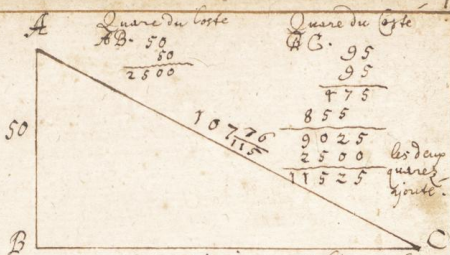 A
Quare du Coste
AB. 50
50
2500
Quare du Coste
BC.
95
95
475
855
9025
2500
11525
les deux
quarez
ajouté.
50
107 76/115
B
C